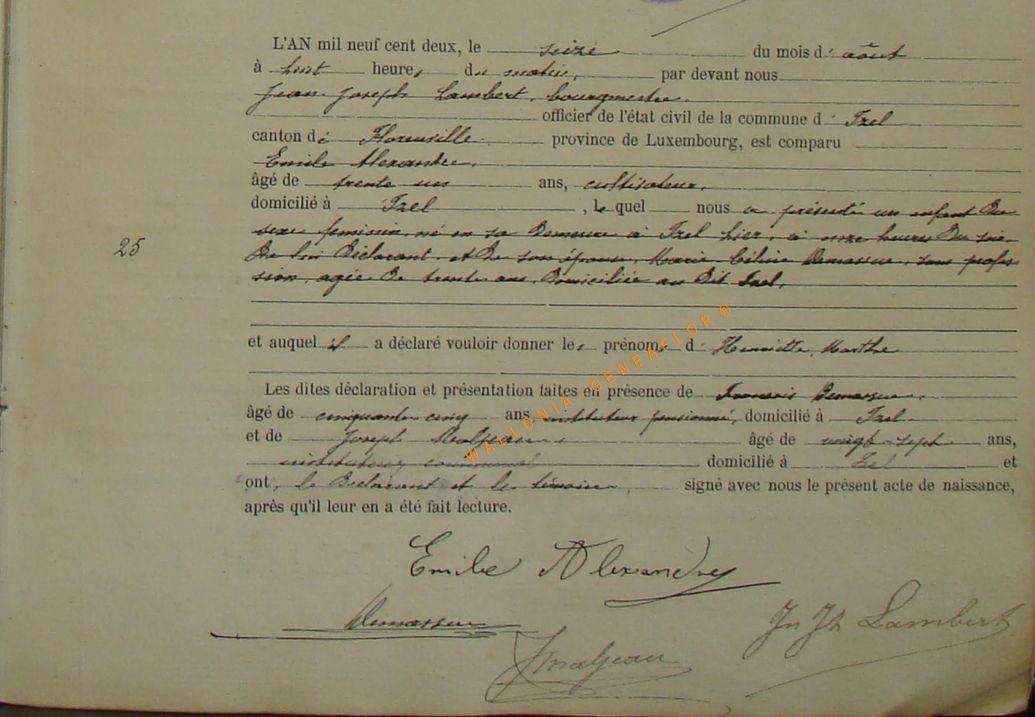 L'AN mil neuf cent deux, le seize du mois d' août
à huit heures du matin, par devant nous
Jean Joseph Lambert, bourgmestre,
officier de l'état civil de la commune d' Izel
canton de Florenville province de Luxembourg, est comparu
Emile Alexandre,
âgé de trente un ans, cultivateur,
domicilié à Izel, lequel nous a présenté un enfant du
sexe féminin, né en sa demeure à Izel hier, à onze heures du soir
de lui Déclarant et de son épouse, Marie Céline Demasseur, sans profes
sion, agée de trente ans, domiciliée au dit Izel,
25
et auquel il a déclaré vouloir donner les prénoms d' Henriette, Marthe
Les dites déclaration et présentation faites en présence de François Demasseur,
âgé de cinquante cinq ans instituteur pensionné, domicilié à Izel
et de Joseph Maljean, âgé de vingt-sept ans,
instituteur communal domicilié à Izel et
ont, le Déclarant et les témoins, signé avec nous le présent acte de naissance,
après qu'il leur en a été fait lecture.
WALLONIA-GENEAFLOR©
Emile Alexandre
Demasseur
Jn Jh Lambert
J Maljean